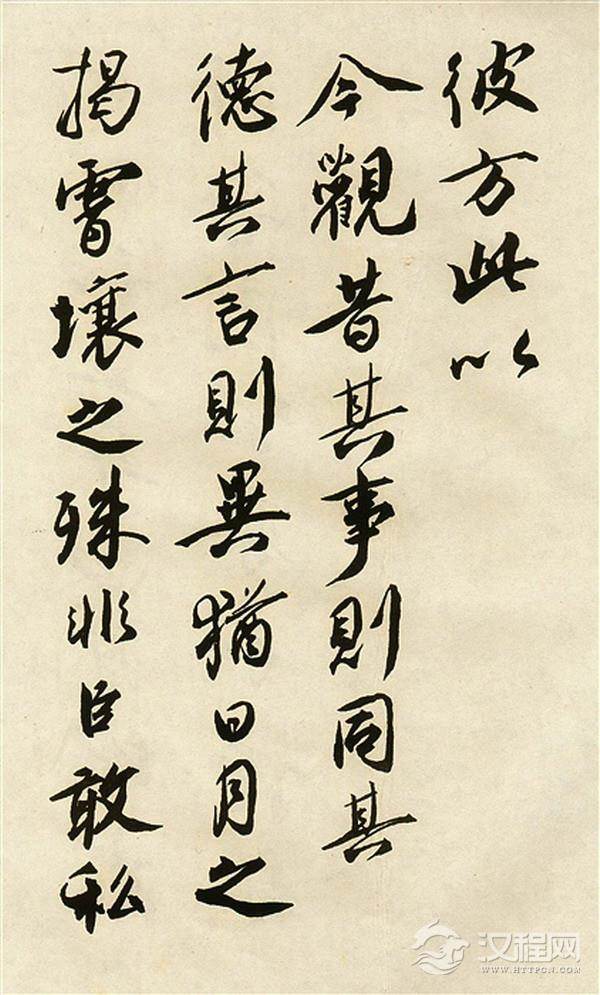 彼方此以
今觀昔其事則同其
德其言則異猶日月之
揭霄壤之殊非臣敢私
汉程网
WWW.HTTPCN.COM